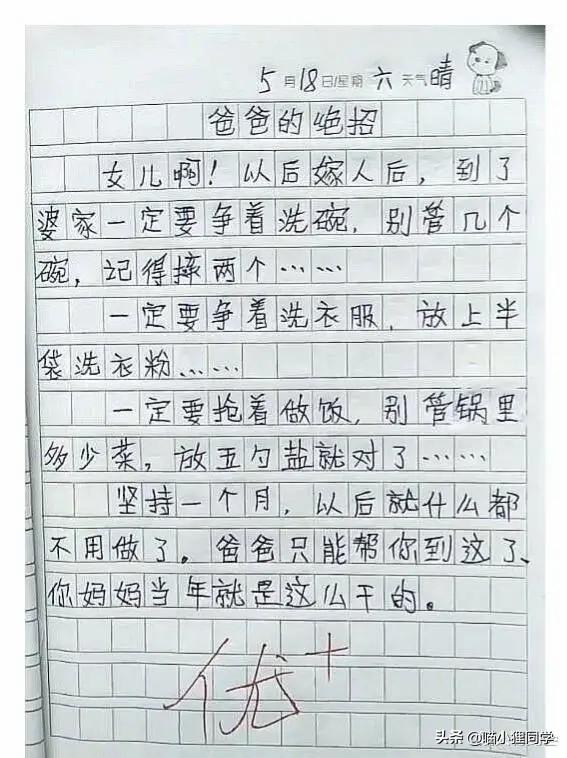 5月18日/星期六天气晴
爸爸的绝招
女儿啊！以后嫁人后，到了
婆家一定要争着洗碗，别管几个
碗，记得摔两个……
一定要争着洗衣服，放上半
袋洗衣粉……
一定要抢着做饭，别管锅里
多少菜，放五勺盐就对了……
坚持一个月，以后就什么都
不用做了。爸爸只能帮你到这了、
你妈妈当年就是这么干的。
优+
头条 @喵小狸同学